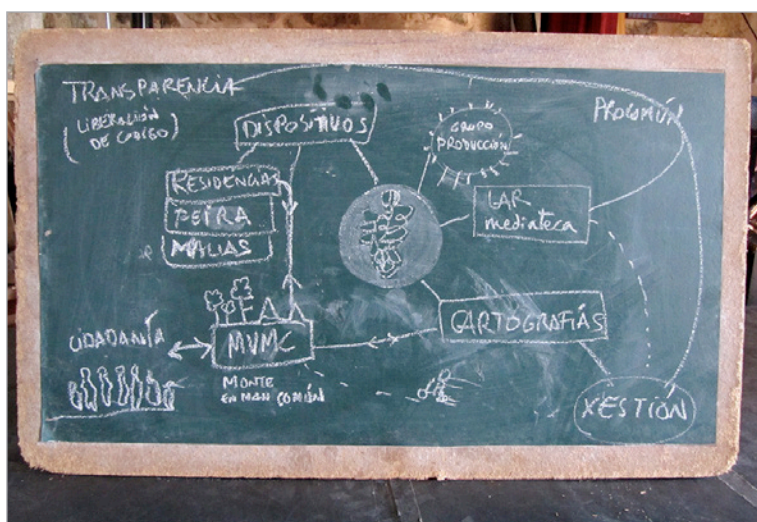 TRANSPARENCIA
(LIBERACIÓN
DE CÓDIGO)
DISPOSITIVOS
GRUPO
PRODUCCIÓN
PROCOMÚN
RESIDENCIAS
FEIRA
MALLAS
LAR
mediateca
CARTOGRAFIÁS
CIDADANÍA
MVMC
MONTE
EN MAN COMÚN
XESTIÓN